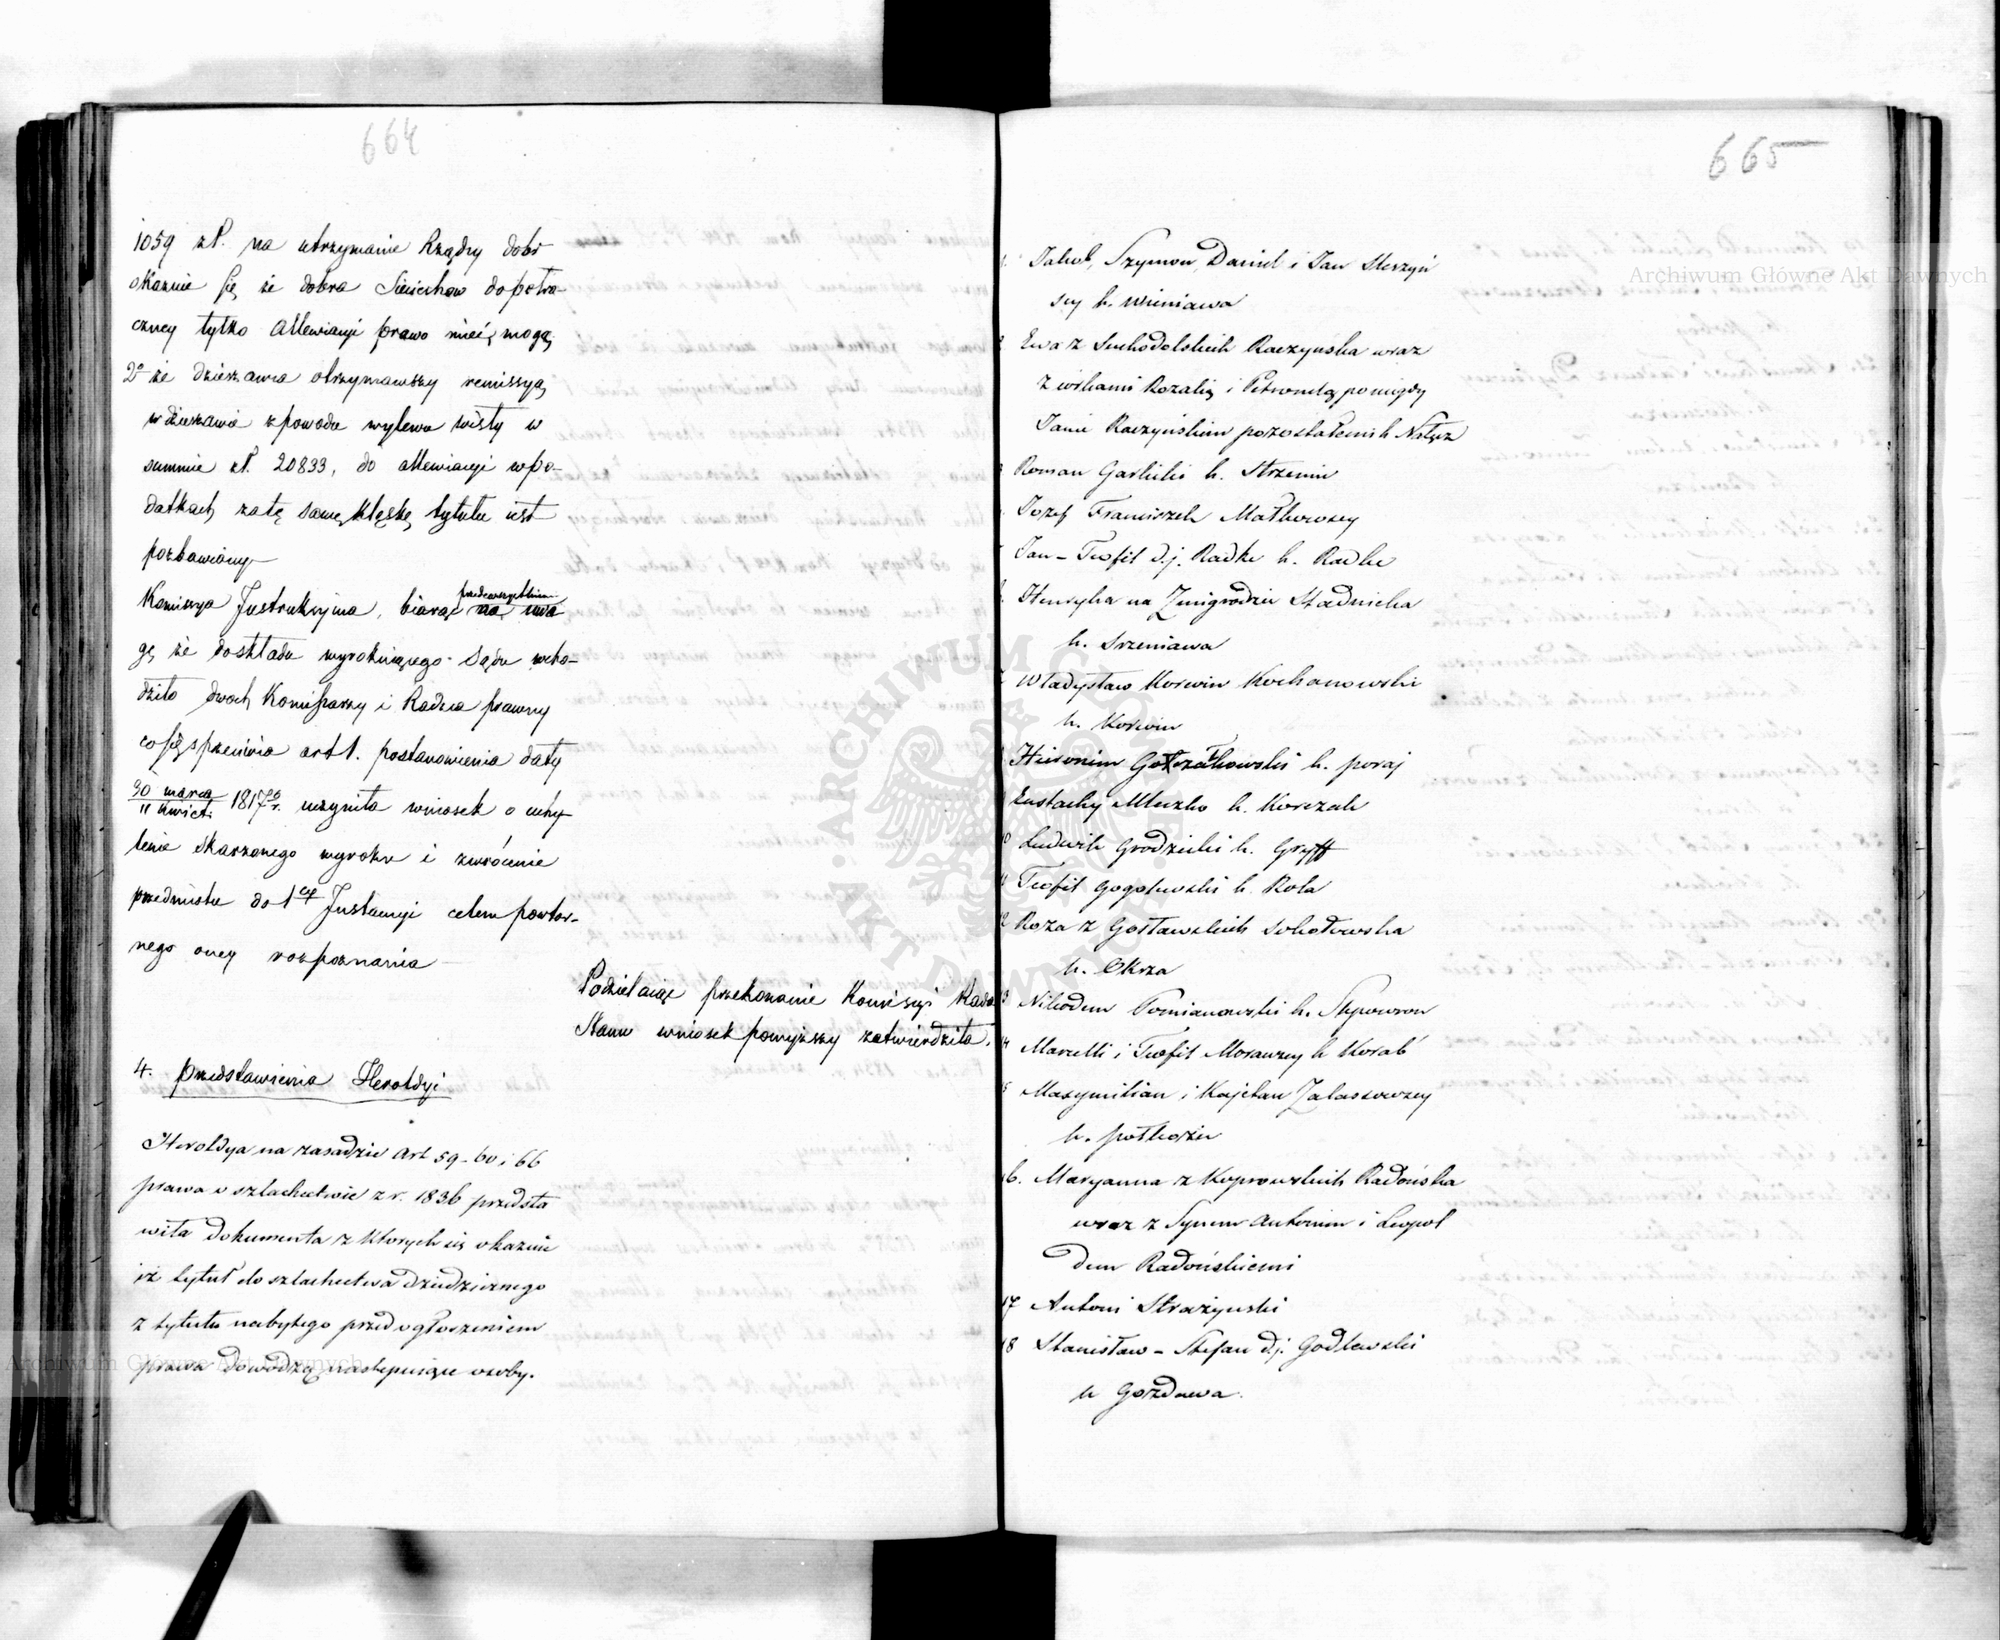 664
1059 zł. na utrzymanie Rządcy dobr
okazuie się że dobra Sieciechow do potrą-
cznej tylko allewiacyi prawo mieć mogą,
2º że dzierżawca otrzymawszy remissyą
w dzierzawie z powodu wylewu Wisły w
summie zł. 20833, do allewiacyi w po-
datkach za tę samę klęskę tytułu iest
pozbawiony
Komissya Instrukcyjna, biorąc przedewszystkiem na uwa
gę że do składu wyrokuiącego Sądu wcho-
dziło dwoch Komissarzy i Radzca prawny
co się sprzeciwia art 1. postanowienia daty
30 marca
11 Kwiet. 1817 r. uczyniła wniosek o uchy
lenie skarzonego wyroku i zwrócenie
przedmiotu do 1ey Instancyi celem powtor-
nego oney rozpoznania
Podzielaiąc przekonanie Komissyi Rada
Stanu wniosek powyższy zatwierdziła.
4. Przedstawienia Heroldyi
Heroldya na zasadzie Art 59-60 i 66
prawa o szlachectwie z r. 1836 przedsta
wiła dokumenta z których się okazuie
iż tytuł do szlachectwa dziedzicznego
z tytułu nabytego przed ogłoszeniem
prawa dowodzą następuiące osoby.
665
Jakub, Szymon, Daniel i Jan
scy h. Wieniawa
Ewa z Suchodolskich Raczyńska wraz
z córkami Rozalią i Petronelą po niegdy
Janie Raczyńskim pozostałemi h. Nałęcz
Roman Garlicki h. Strzemie
Jozef Franciszek Małkowscy
Jan-Teofil d.i. Radke h. Radke
Henryka na Zmigrodzie Stadnicka
h. Srzeniawa
Władysław Korwin Kochanowski
h. Korwin
Hieronim Gołczałkowski h. poraj
Eustachy Mleczko h. Korczak
10 Ludwik Grodzicki h. Gryff
11 Teofil Gogolewski h. Rola
12 Roza z Gosławskich Sokołowska
h. Okrza
13 Nikodem Pomianowski h. Slepowron
14 Marcelli i Teofil Morawscy h Korab
15 Maxymilian i Kajetan Zalassowscy
h. połkozic
16. Maryanna z Koprowskich Radońska
wraz z Synem Antonim i Leopol
dem Radońskiemi
17 Antoni Strażyński
18 Stanisław-Stefan d.i. Godlewski
h Gozdawa.
Archiwum Główne Akt Dawnych
Archiwum Główne Akt Dawnych